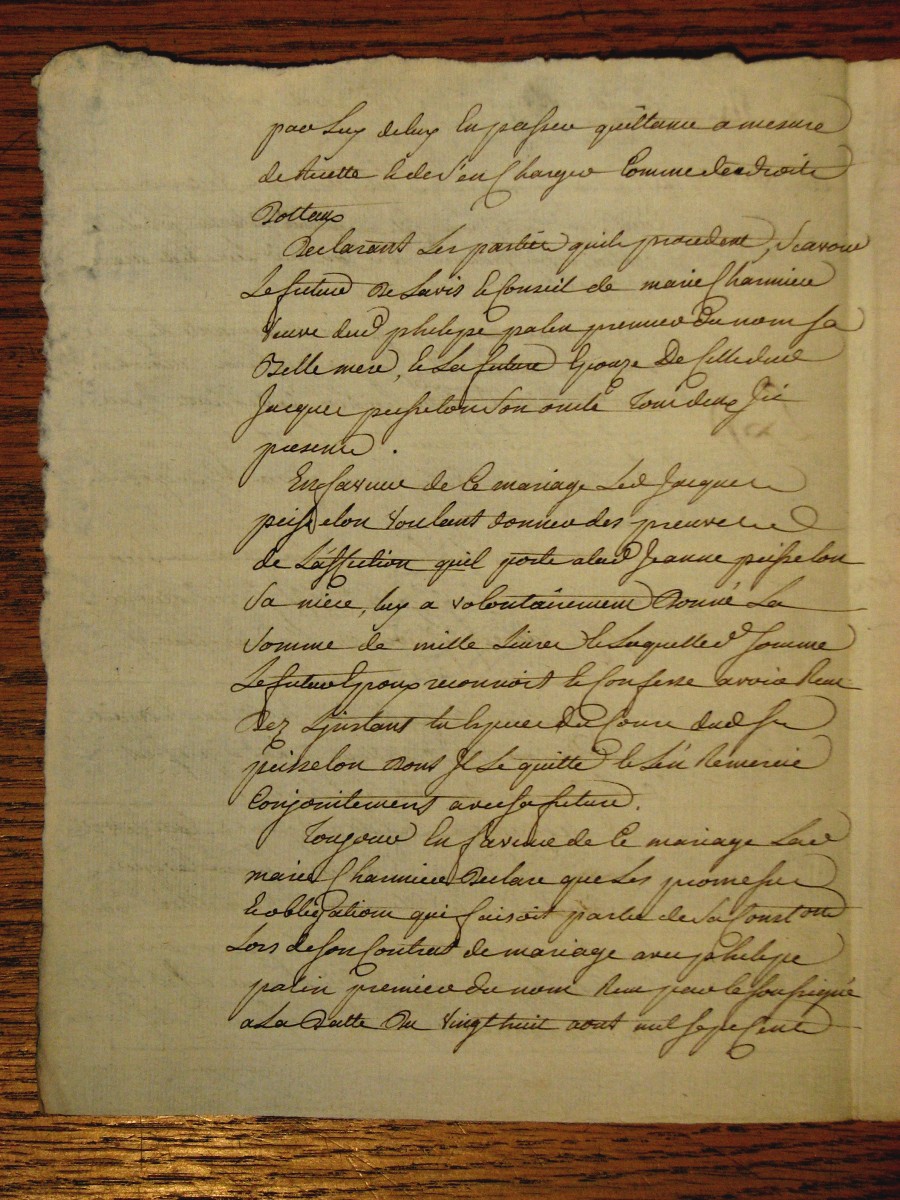 par luy de luy en passer quittance a mesure
de recette & de s'en charger comme de droits
Dottaux
Declarant les parties quils procedent, scavoir
Le futur De Lavis & Conseil de marie Charmiere
veuve dud philipe palin premier du nom sa
Belle mere, & La future Epouze De Celle dud
Jacques peisselon son oncle Tous deux Jci
presents.
En faveur de Ce mariage Led Jacques
peisselon voulant donner des preuves
de L'affection quil porte a lad Jeanne peisselon
sa niece, luy a volontairement Donné La
somme de mille Livres & Laquelle somme
Le futur Epoux reconnoit & Confesse avoir Reçu
Dez Linstant en Especes du Cours dud sr
peisselon Dont Jl Le quitte & L'en Remercie
Conjointement avec sa future.
Toujours En faveur de Ce mariage Lad
marie Charmiere Declare que Les promesses
& obligations qui faisoit partie de sa Conston
Lors de son Contrat de mariage avec philipe
palin premier du nom Reçu par le soussigné
a La Datte Du vingt huit aout mil sept Cent